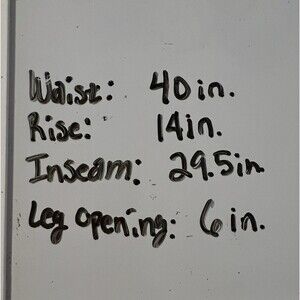 Waist: 40in.
Rise: 14in.
Inseam: 29.5in
Leg Opening: 6in.